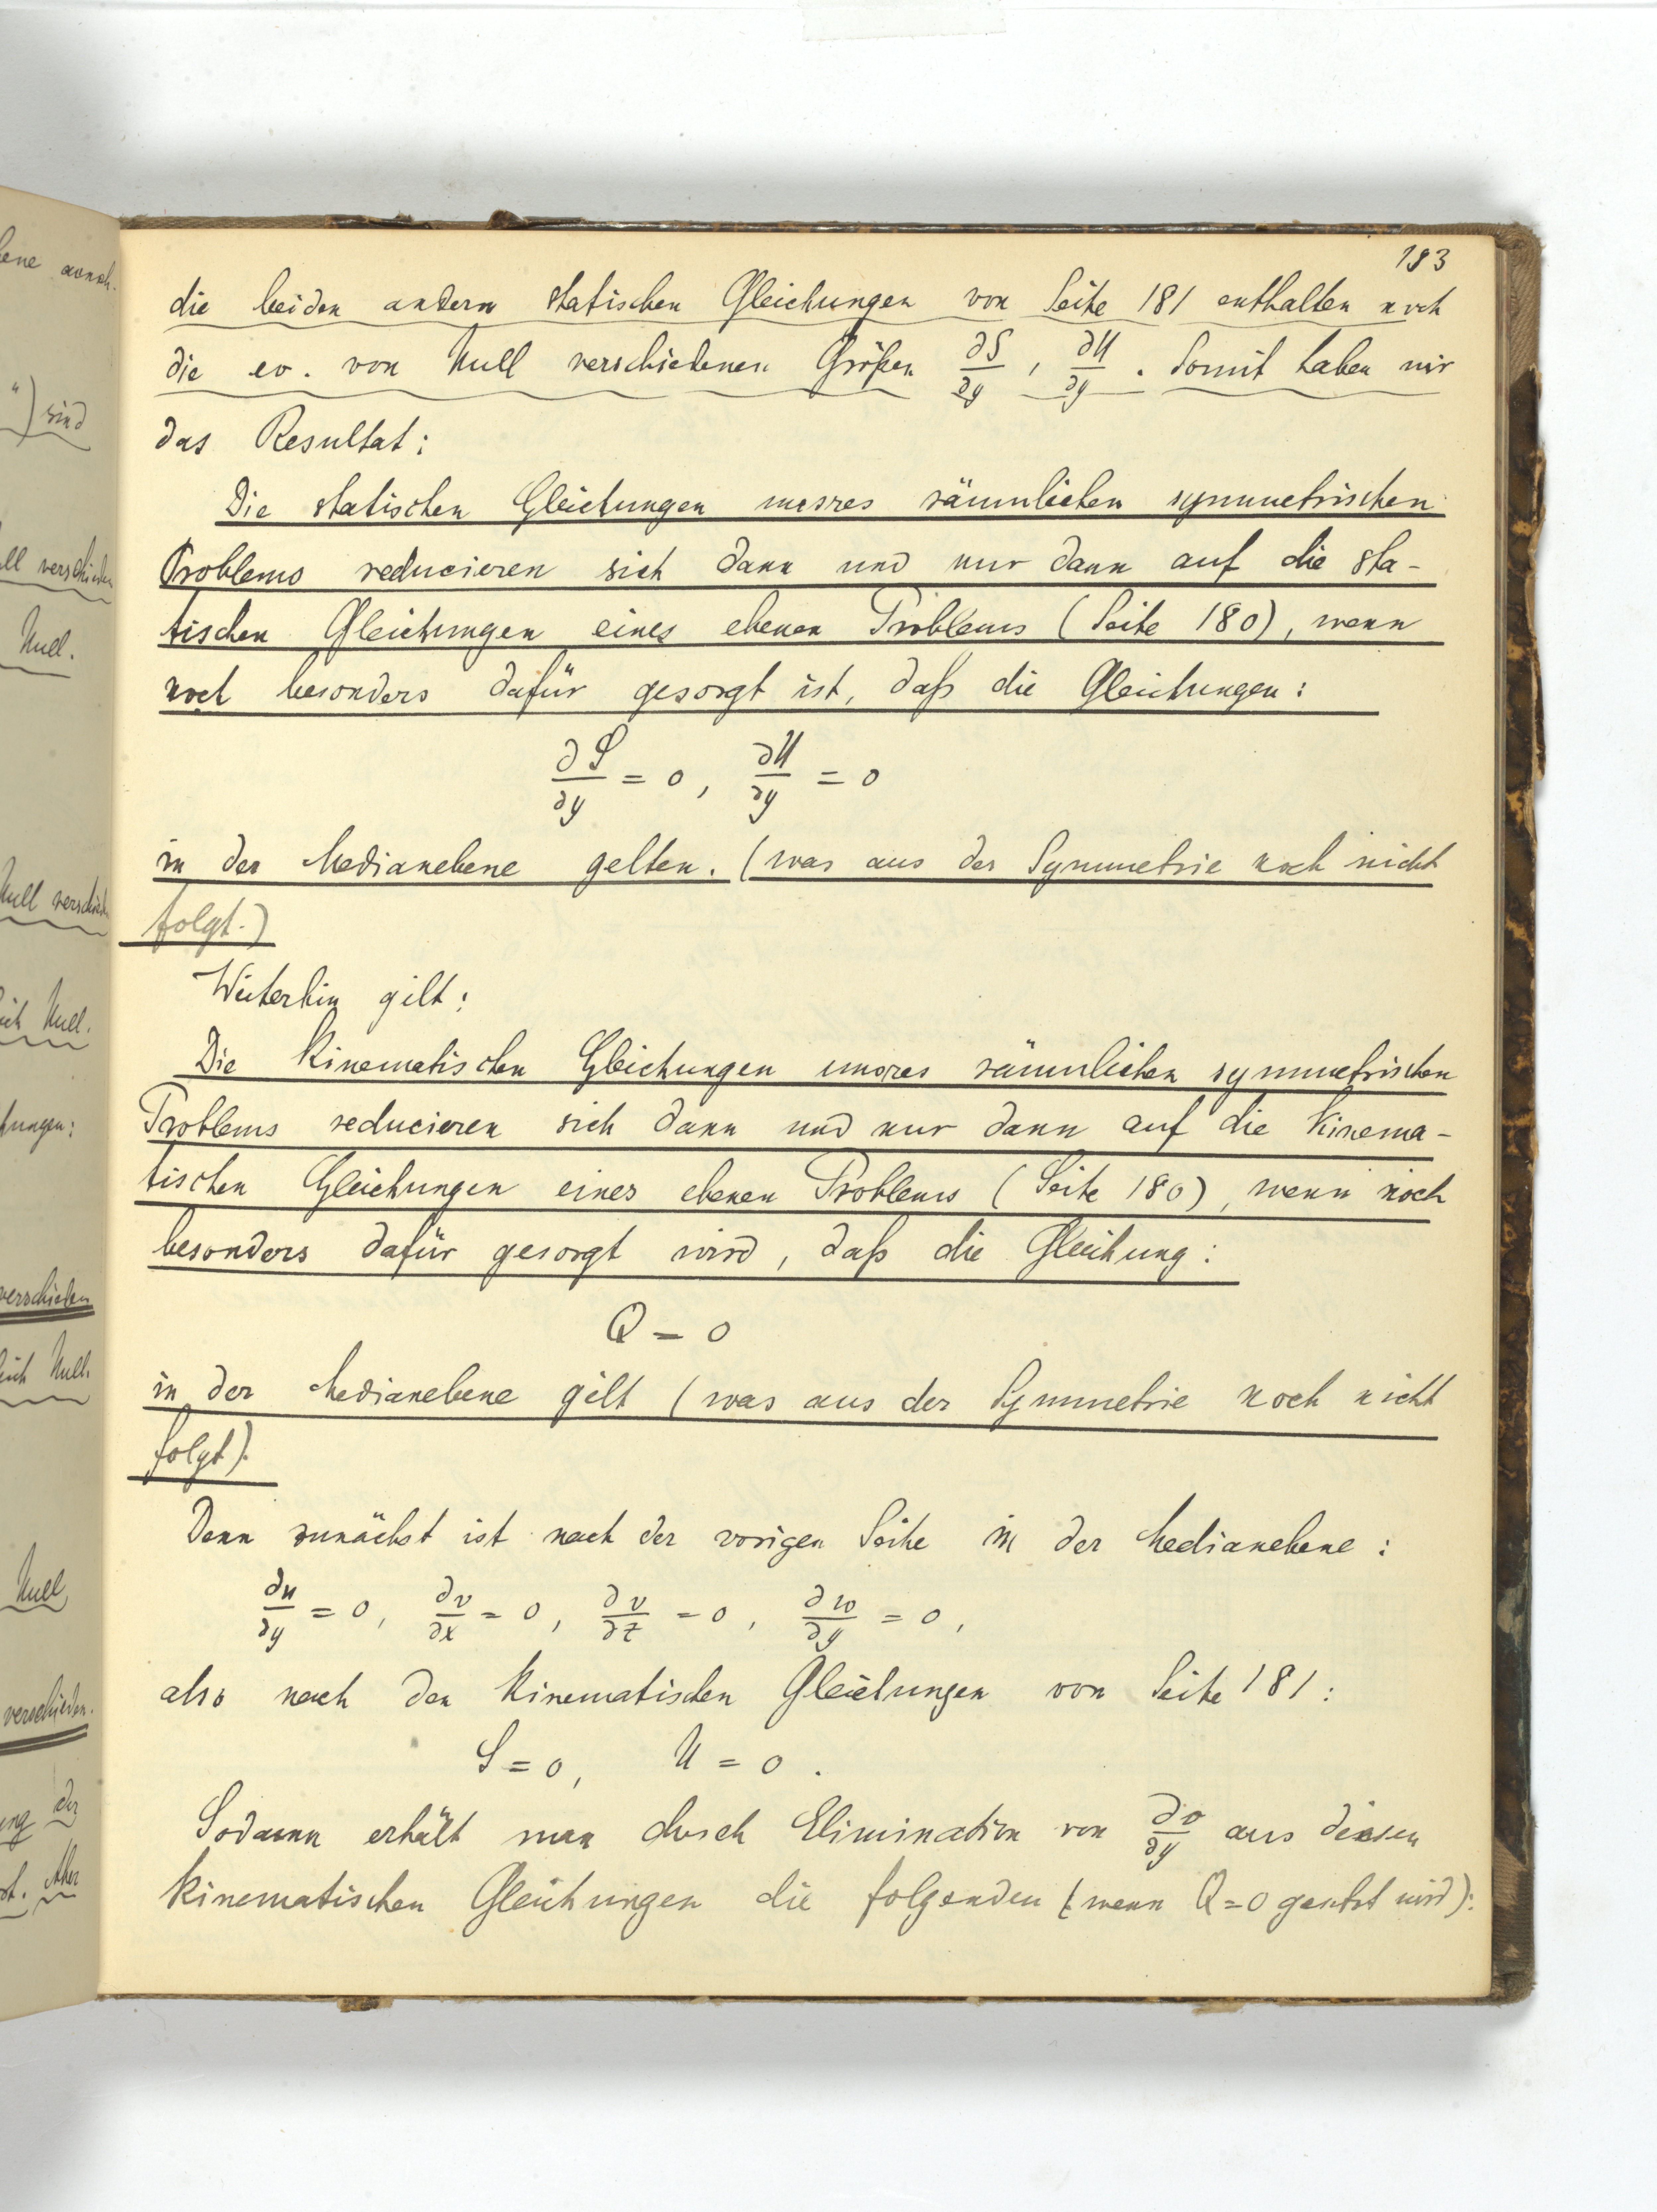 183
die beiden andern statischen Gleichungen von Seite 181 enthalten noch
die ev. von Null verschiedenen Größen ∂S/∂y, ∂U/∂y. Somit haben wir
das Resultat:
Die statischen Gleichungen unsres räumlichen symmetrischen
Problems reducieren sich dann und nur dann auf die sta-
tischen Gleichungen eines ebenen Problems (Seite 180), wenn
noch besonders dafür gesorgt ist, daß die Gleichungen:
∂S/∂y = 0, ∂U/∂y = 0
in der Medianebene gelten. (was aus der Symmetrie noch nicht
folgt.)
Weiterhin gilt:
Die kinematischen Gleichungen unsres räumlichen symmetrischen
Problems reducieren sich dann und nur dann auf die kinema-
tischen Gleichungen eines ebenen Problems (Seite 180), wenn noch
besonders dafür gesorgt wird, daß die Gleichung:
Q = 0
in der Medianebene gilt (was aus der Symmetrie noch nicht
folgt).
Denn zunächst ist nach der vorigen Seite in der Medianebene:
∂u/∂y = 0, ∂v/∂x = 0, ∂v/∂z = 0, ∂w/∂y = 0,
also nach den kinematischen Gleichungen von Seite 181:
S = 0, U = 0.
Sodann erhält man durch Elimination von ∂v/∂y aus diesen
kinematischen Gleichungen die folgenden (wenn Q=0 gesetzt wird):